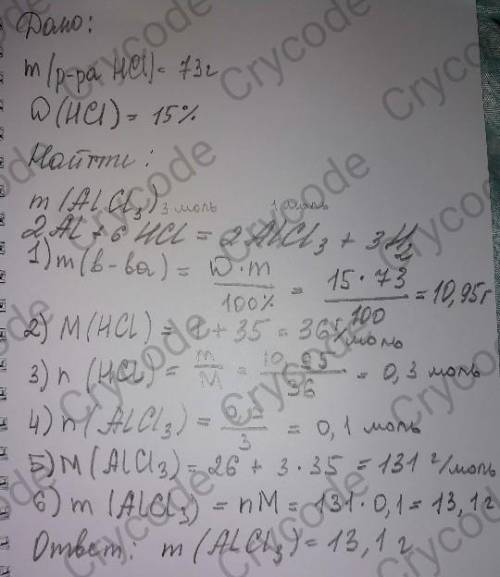 Дано:
m(р-ра HCl) = 73г
W(HCl) = 15%
Найти:
m(AlCl3) 3 моль 1 моль
2Al + 6HCl = 2AlCl3 + 3H2
1) m(в-ва) = W·m / 100% = 15·73 / 100 = 10,95г
2) M(HCl) = 1 + 35 = 36 г/моль
3) n(HCl) = m / M = 10,95 / 36 = 0,3 моль
4) n(AlCl3) = 0,3 / 3 = 0,1 моль
5) M(AlCl3) = 26 + 3·35 = 131 г/моль
6) m(AlCl3) = nM = 131·0,1 = 13,1г
Ответ: m(AlCl3) = 13,1 г
Crycode
Crycode
Crycode
Crycode
Crycode
Crycode
Crycode
Crycode
Crycode